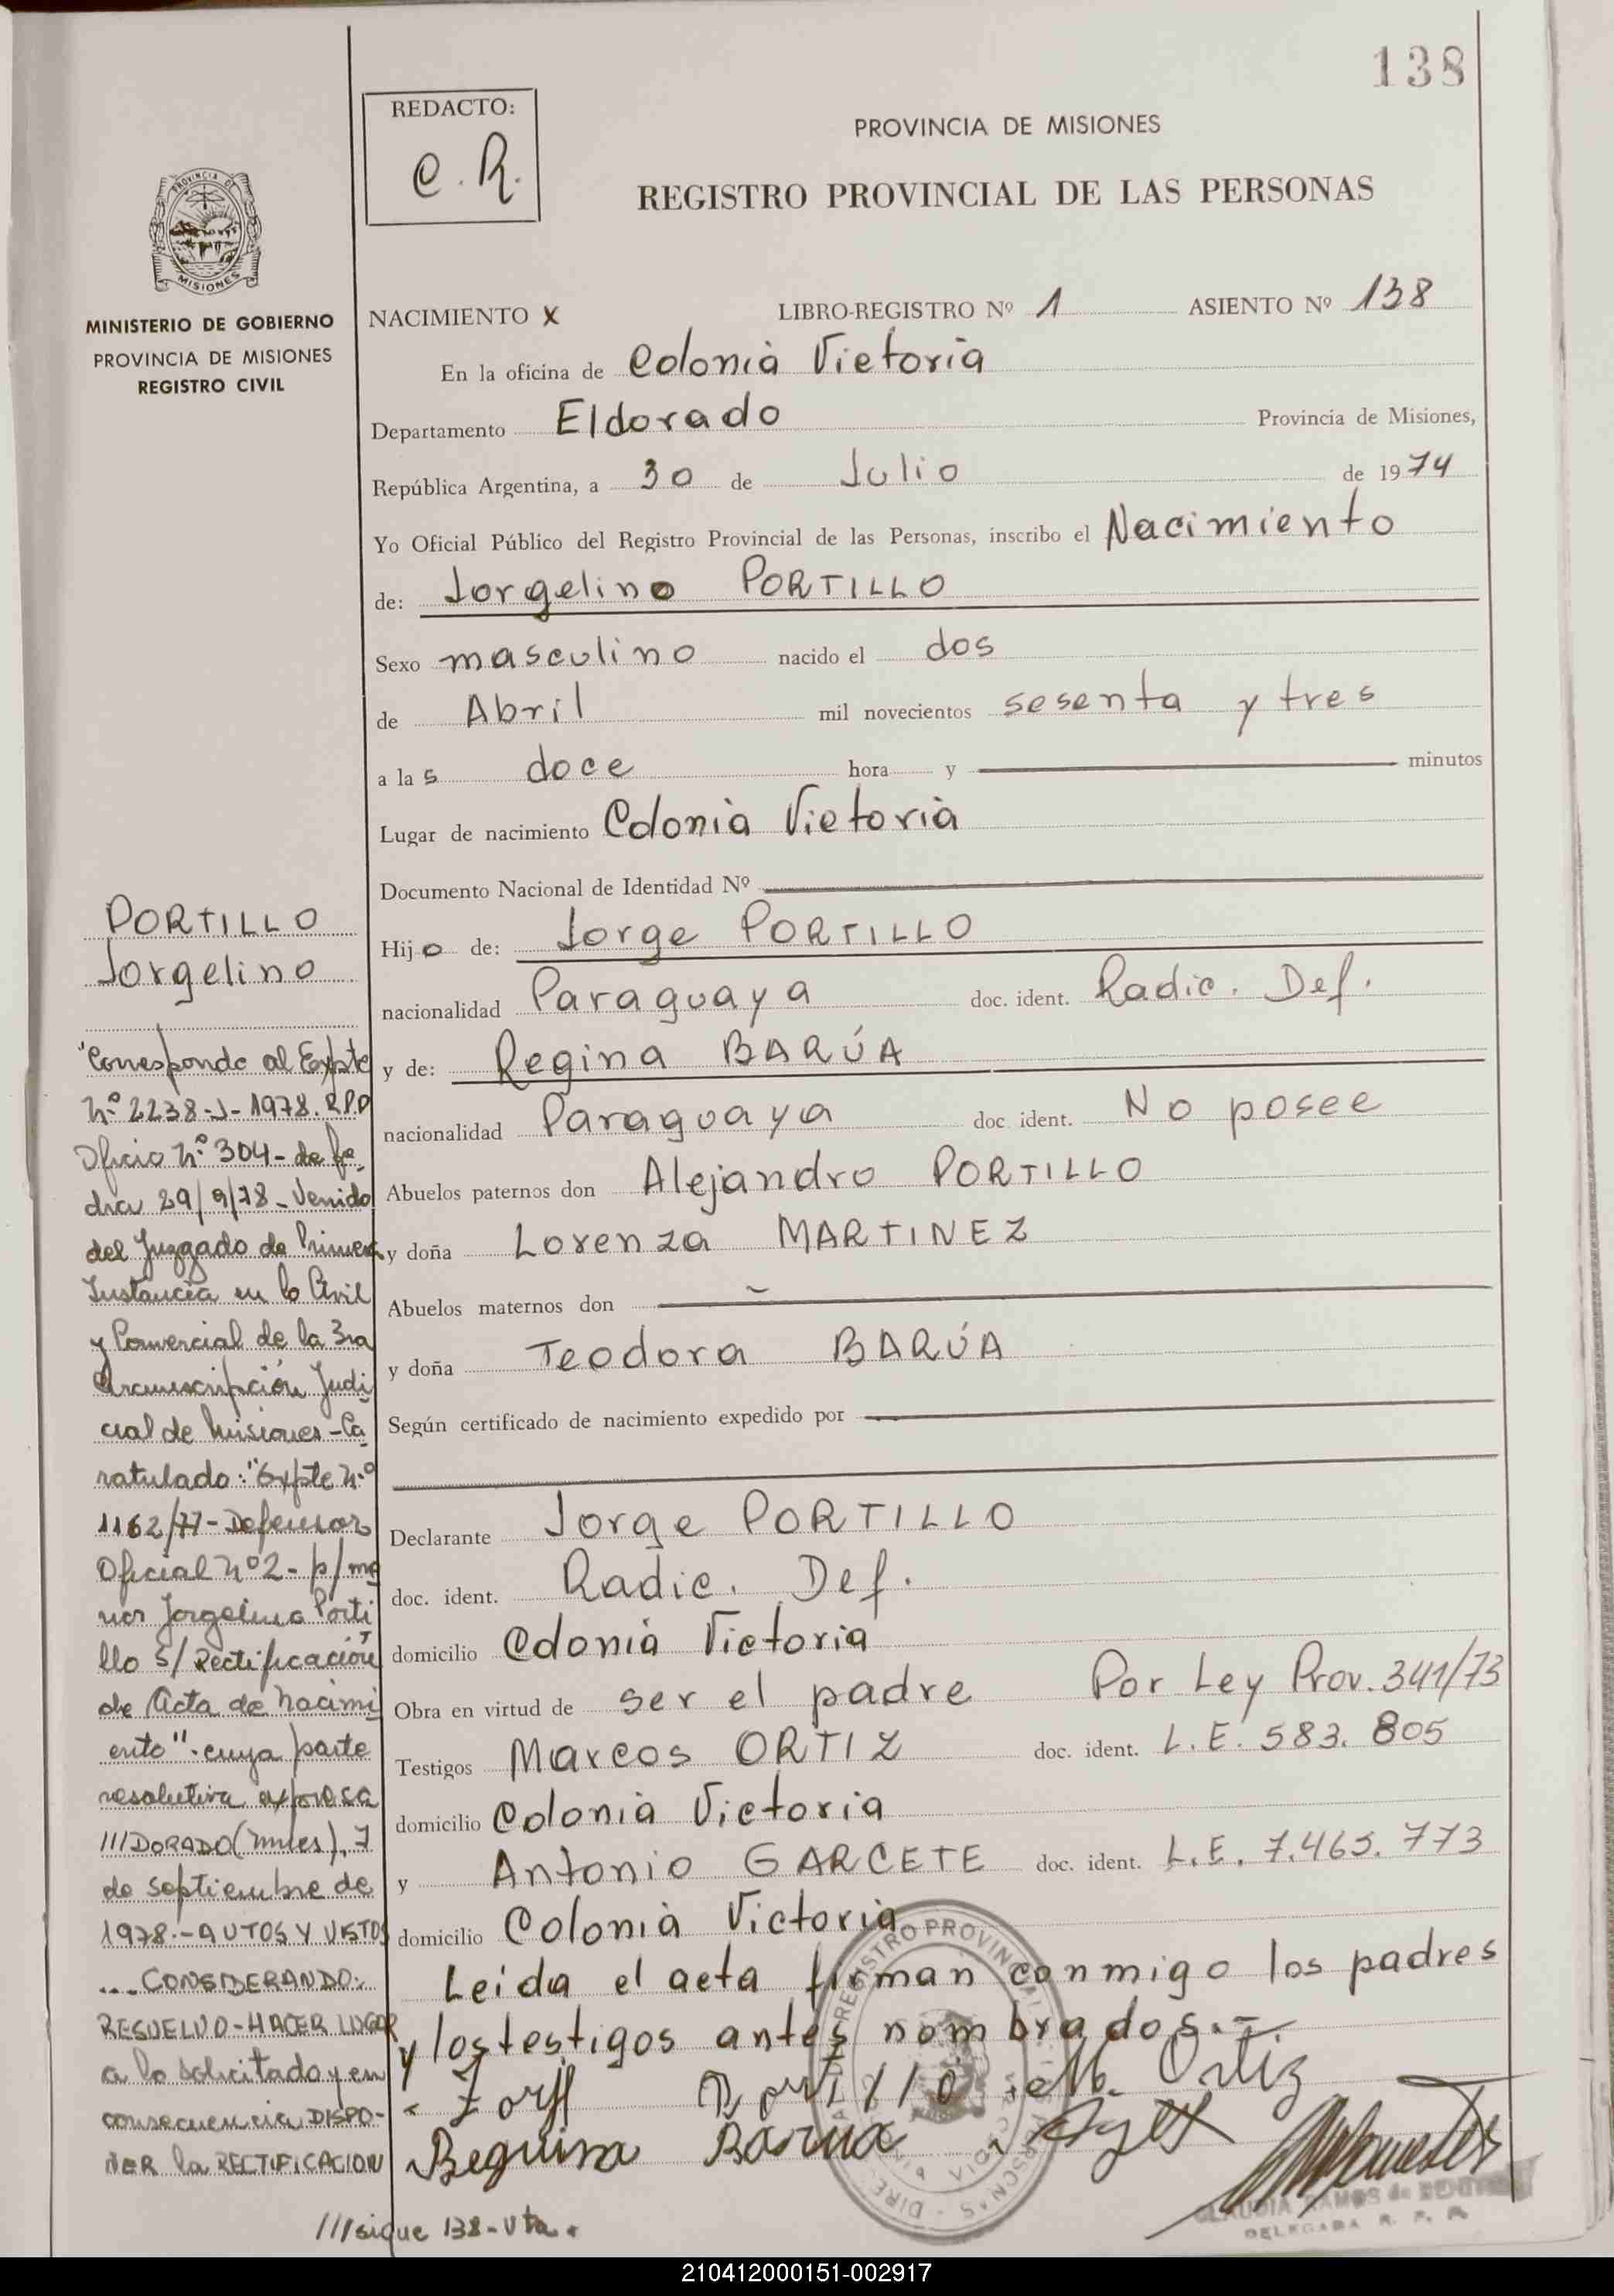 138
REDACTO:
C. R.
PROVINCIA DE MISIONES
REGISTRO PROVINCIAL DE LAS PERSONAS
PROVINCIA DE
MISIONES
MINISTERIO DE GOBIERNO
PROVINCIA DE MISIONES
REGISTRO CIVIL
NACIMIENTO X LIBRO-REGISTRO Nº 1 ASIENTO Nº 138
En la oficina de Colonia Victoria
Departamento Eldorado Provincia de Misiones,
República Argentina, a 30 de Julio de 1974
Yo Oficial Público del Registro Provincial de las Personas, inscribo el Nacimiento
de: Jorgelino PORTILLO
Sexo masculino nacido el dos
de Abril mil novecientos sesenta y tres
a las doce hora y minutos
Lugar de nacimiento Colonia Victoria
Documento Nacional de Identidad Nº
Hijo de: Jorge PORTILLO
nacionalidad Paraguaya doc. ident. Radic. Def.
y de: Regina BARÚA
nacionalidad Paraguaya doc. ident. No posee
Abuelos paternos don Alejandro PORTILLO
y doña Lorenza MARTINEZ
Abuelos maternos don
y doña Teodora BARÚA
Según certificado de nacimiento expedido por
Declarante Jorge PORTILLO
doc. ident. Radic. Def.
domicilio Colonia Victoria
Obra en virtud de ser el padre Por Ley Prov. 341/73
Testigos Marcos ORTIZ doc. ident. L.E. 583.805
domicilio Colonia Victoria
y Antonio GARCETE doc. ident. L.E. 7.465.773
domicilio Colonia Victoria
Leida el acta firman conmigo los padres
y los testigos antes nombrados.-
Portillo M. Ortiz
Reguina Barua
CLAUDIA RAMOS de
DELEGADA R. P. P.
PORTILLO
Jorgelino
"Corresponde al Expte
Nº 2238-J-1978. R.P.P
Oficio Nº 304- de fe-
cha 29/9/78- Venido
del Juzgado de Primera
Instancia en lo Civil
y Comercial de la 3ra
Circunscripción Judi
cial de Misiones-Ca
ratulado: "Expte Nº
1162/77- Defensor
Oficial Nº2- p/me
nor Jorgelino Porti
llo S/ Rectificación
de Acta de Nacimi
ento". cuya parte
resolutiva expresa
///DORADO (Mnes), 7
de septiembre de
1978.- AUTOS Y VISTOS
... CONSIDERANDO:
RESUELVO-HACER LUGAR
a lo solicitado y en
consecuencia DISPO-
NER la RECTIFICACION
///sigue 138-Vta.
210412000151-002917